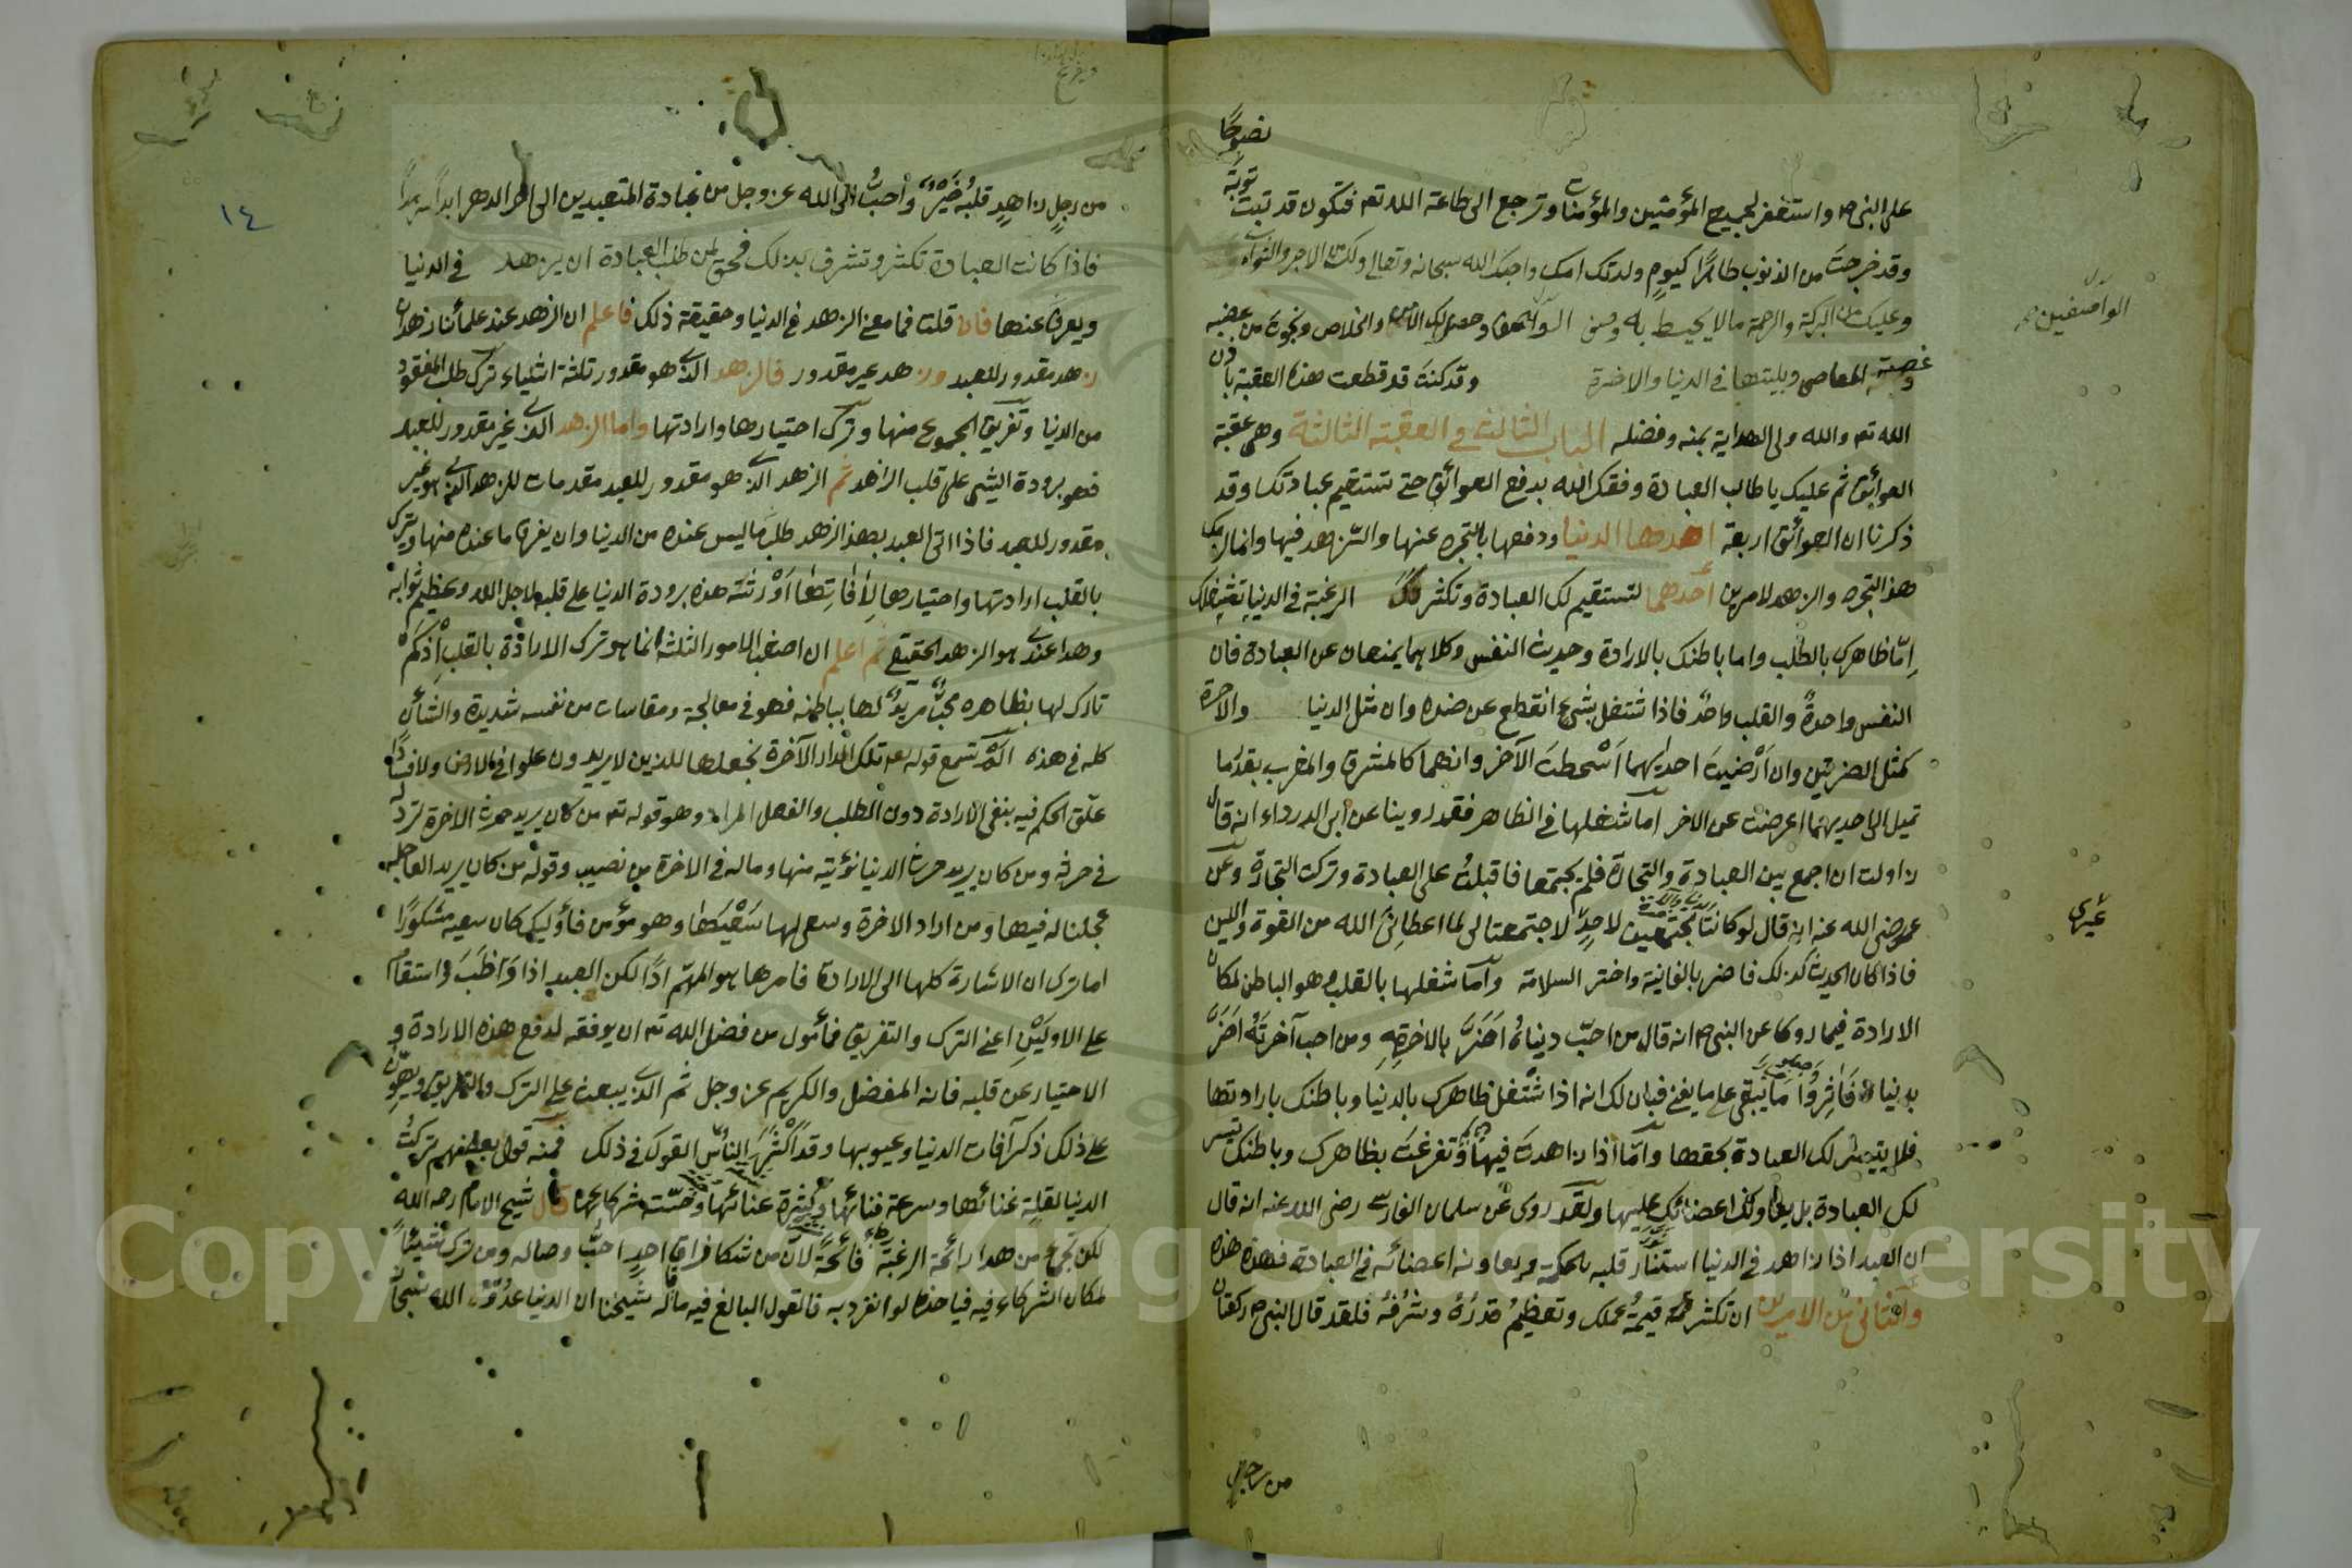 نصوحًا
على النبي م واستغفر لجميع المؤمنين والمؤمنات وترجع الى طاعة الله تع فتكون قد تبت توبة
وقد خرجت من الذنوب طاهرًا كيوم ولدتك امك واحبك الله سبحانه وتعالى ولك من الاجر والثواب
وعليك من البركة والرحمة مالا يحيط به وصف الواصفون وحصل لك الامن والخلاص ونجوت من غضبه
وغصة المعاصى وبليتها فى الدنيا والاخرة وقد كنت قد قطعت هذه العقبة باذن
الله تع والله ولى الهداية بمنه وفضله الباب الثالث فى العقبة الثالثة وهى عقبة
العوائق ثم عليك يا طالب العبادة وفقك الله بدفع العوائق حتى تستقيم عبادتك وقد
ذكرنا ان العوائق اربعة احدها الدنيا ودفعها بالتجرد عنها والتزهد فيها وانما لزمك
هذا التجرد والزهد لامرين أحدهما لتستقيم لك العبادة وتكثر فان الرغبة فى الدنيا تشغلك
امّا ظاهرك بالطلب واما باطنك بالارادة وحديث النفس وكلاهما يمنعان عن العبادة فان
النفس واحدة والقلب واحد فاذا اشتغل بشئ انقطع عن ضده وان مثل الدنيا والاخرة
كمثل الضرتين وان ارضيت احديهما أسخطت الآخر وانهما كالمشرق والمغرب بقدر ما
تميل الى احديهما اعرضت عن الاخر اما شغلها فى الظاهر فقد روينا عن ابى الدرداء انه قال
زاولت ان اجمع بين العبادة والتجارة فلم يجتمعا فاقبلت على العبادة وتركت التجارة وعن
عمر رضى الله عنه انه قال لو كانتا مجتمعين لاحد لاجتمعتا لى لما اعطانى الله من القوة واللين
فاذا كان الحديث كذلك فاضر بالفانية واختر السلامة وأما شغلها بالقلب وهو الباطن لمكان
الارادة فيما روى عن النبى م انه قال من احبّ دنياه اضرّ بالاخرته ومن احب آخرته اضرّ
بدنياه فآثروا ما يبقى على ما يفنى فبان لك انه اذا اشتغل ظاهرك بالدنيا وباطنك بارادتها
فلا يتيسر لك العبادة بحقها وامّا اذا زاهدت فيها وتفرغت بظاهرك وباطنك تيسر
لك العبادة بل يعاونك اعضائك عليها ولقد روى عن سلمان الفارسى رضى الله عنه انه قال
ان العبد اذا زاهد فى الدنيا استنار قلبه بالحكمة ويعاونه اعضائه فى العبادة فهذه هذه
والثانى من الامرين ان تكثر قيمة عملك وتعظيم قدره وشرفه فلقد قال النبى م ركعتان
من رجل
الواصفين
غيرى
١٤
من رجل زاهد قلبه خير وأحب الى الله عز وجل من عبادة المتعبدين الى اخر الدهر ابدا سرمدًا
فاذا كانت العبادة تكثر وتشرف بذلك فحق لمن طلب العبادة ان يزهد فى الدنيا
ويعرض عنها فان قلت فما معنى الزهد فى الدنيا وحقيقة ذلك فاعلم ان الزهد عند علمائنا زهدان
زهد مقدور للعبد وزهد غير مقدور فالزهد الذى هو مقدور ثلثة اشياء ترك طلب المفقود
من الدنيا وتفريق المجموع منها وترك اختيارها وارادتها واما الزهد الذى غير مقدور للعبد
فهو برودة الشئ على قلب الزاهد ثم الزهد الذى هو مقدور للعبد مقدمات للزهد الذى هو غير
مقدور للعبد فاذا اتى العبد بهذا الزهد طلب ما ليس عنده من الدنيا وان يفرق ما عنده منها ويترك
بالقلب ارادتها واختيارها لآفاتها أورثته هذه برودة الدنيا على قلبه لاجل الله وعظيم ثوابه
وهذا عندى هو الزهد الحقيقى ثم اعلم ان اصعب الامور الثلثة انما هو ترك الارادة بالقلب اذ كم
تارك لها بظاهره محب مريد لها بباطنه فهو فى معالجة ومقاسات من نفسه شديدة والشأن
كله فى هذه الم تسمع قوله تع تلك الدار الآخرة نجعلها للذين لا يريدون علوا فى الارض ولا فسادًا
علق الحكم فيه بنفى الارادة دون الطلب والفعل المراد وهو قوله تع من كان يريد حرث الاخرة نزد له
فى حرثه ومن كان يريد حرث الدنيا نؤتيه منها وماله فى الاخرة من نصيب وقوله من كان يريد العاجلة
عجلنا له فيها ومن اراد الاخرة وسعى لها سعيها وهو مؤمن فأوليك كان سعيه مشكورًا
اما ترى ان الاشارة كلها الى الارادة فامرها هو المهم اذًا لكن العبد اذا واظب واستقام
على الاولين اعنى الترك والتفريق فمأمول من فضل الله تع ان يوفقه لدفع هذه الارادة و
الاختيار عن قلبه فانه المفضل والكريم عز وجل ثم الذى يبعث على الترك والتفريق ويهون
على ذلك ذكر آفات الدنيا وعيوبها وقد اكثر الناس القول فى ذلك فمنه قول بعضهم تركت
الدنيا لقلة غنائها وسرعة فنائها وكثرة عنائها وخسة شركائها قال شيخ الامام رحمه الله
لكن تجئ من هذا رائحة الرغبة فائحة لان من شكا فراق احد احب وصاله ومن ترك شيئًا
لمكان الشركاء فيه فياخذه لو انفرد به فالقول البالغ فيه ما قاله شيخنا ان الدنيا عدو الله سبحان
Copyright © King Saud University